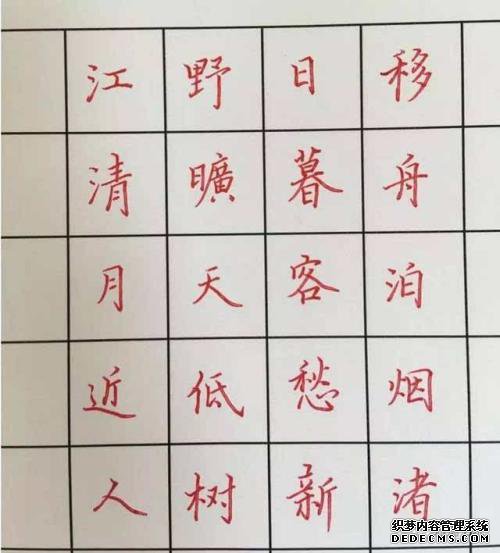 移舟泊烟渚
日暮客愁新
野曠天低树
江清月近人
织梦内容管理系统
DEDECMS.COM